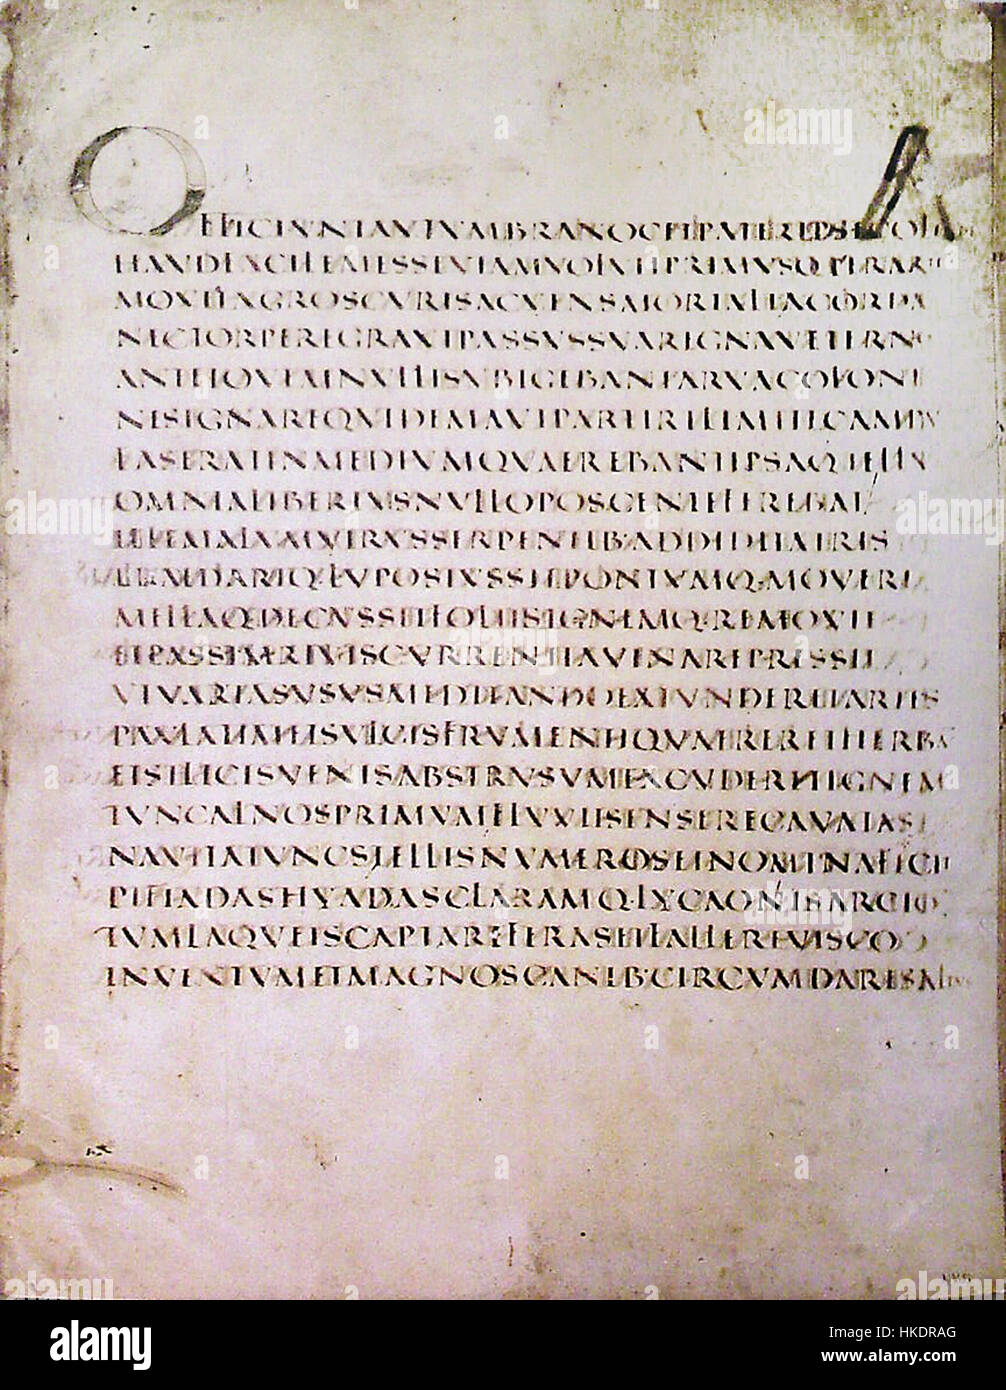 OFFICIUNTAUTUMBRANOCETPATERIPSECOLENDI
HAUDFACILEMESSEUIAMUOLUITPRIMUSQ·PERARTE
MOUITAGROSCURISACUENSMORTALIACORDA
NECTORPEREGRAUIPASSUSSUAREGNAUETERNO
ANTEIOUEMNULLISUBIGEBANTARUACOLONI
NESIGNAREQUIDEMAUTPARTIRILIMITECAMPU
FASERATINMEDIUMQUAEREBANTIPSAQ·TELLUS
OMNIALIBERIUSNULLOPOSCENTEFEREBAT
ILLEMALUMUIRUSSERPENTIB·ADDIDITATRIS
PRAEDARIQ·LUPOSIUSSITPONTUMQ·MOUERI
MELLAQ·DECUSSITFOLIISIGNEMQ·REMOUIT
ETPASSIMRIUISCURRENTIAUINAREPRESSIT
UTUARIASUSUSMEDITANDOEXTUNDERETARTIS
PAULATIMETSULCISFRUMENTIQUAERERETHERBA
ETSILICISUENISABSTRUSUMEXCUDERETIGNEM
TUNCALNOSPRIMUMFLUUIISENSERECAUATAS
NAUITATUNCSTELLISNUMEROSETNOMINAFECIT
PLEIADASHYADASCLARAMQ·LYCAONISARCTO
TUMLAQUEISCAPTAREFERASETFALLEREUISCO
INUENTUMETMAGNOSCANIB·CIRCUMDARESALTUS
alamy
Image ID: HKDRAG
www.alamy.com